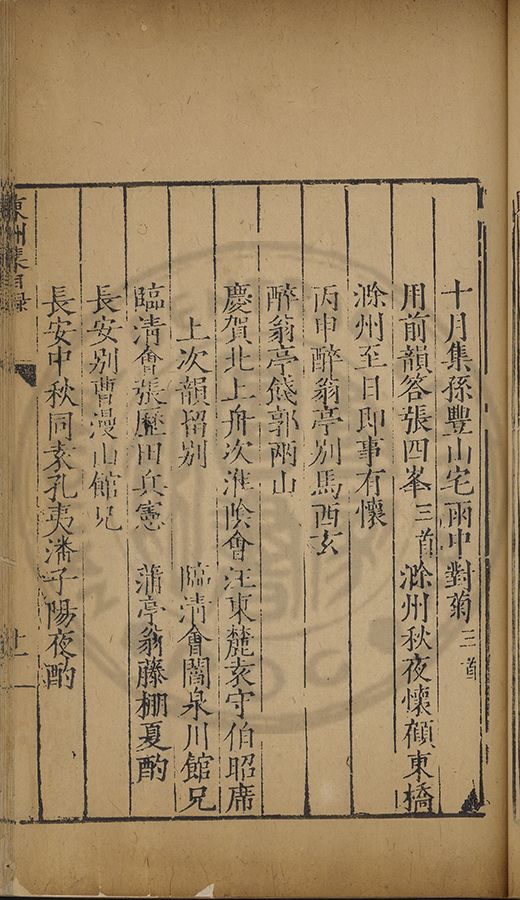 十月集孫豐山宅雨中對菊三首
用前韻答張四峯三首 滁州秋夜懷顧東橋
滁州至日即事有懷
丙申醉翁亭別馬西玄
醉翁亭餞郭兩山
慶賀北上舟次淮陰會汪東麓袁守伯昭席
上次韻留別 臨清會閻泉川館兄
臨清會張歷田兵憲 蒲亭翁藤棚夏酌
長安別曹漫山館兄
長安中秋同袁孔夷潘子陽夜酌
東洲集目錄
十一